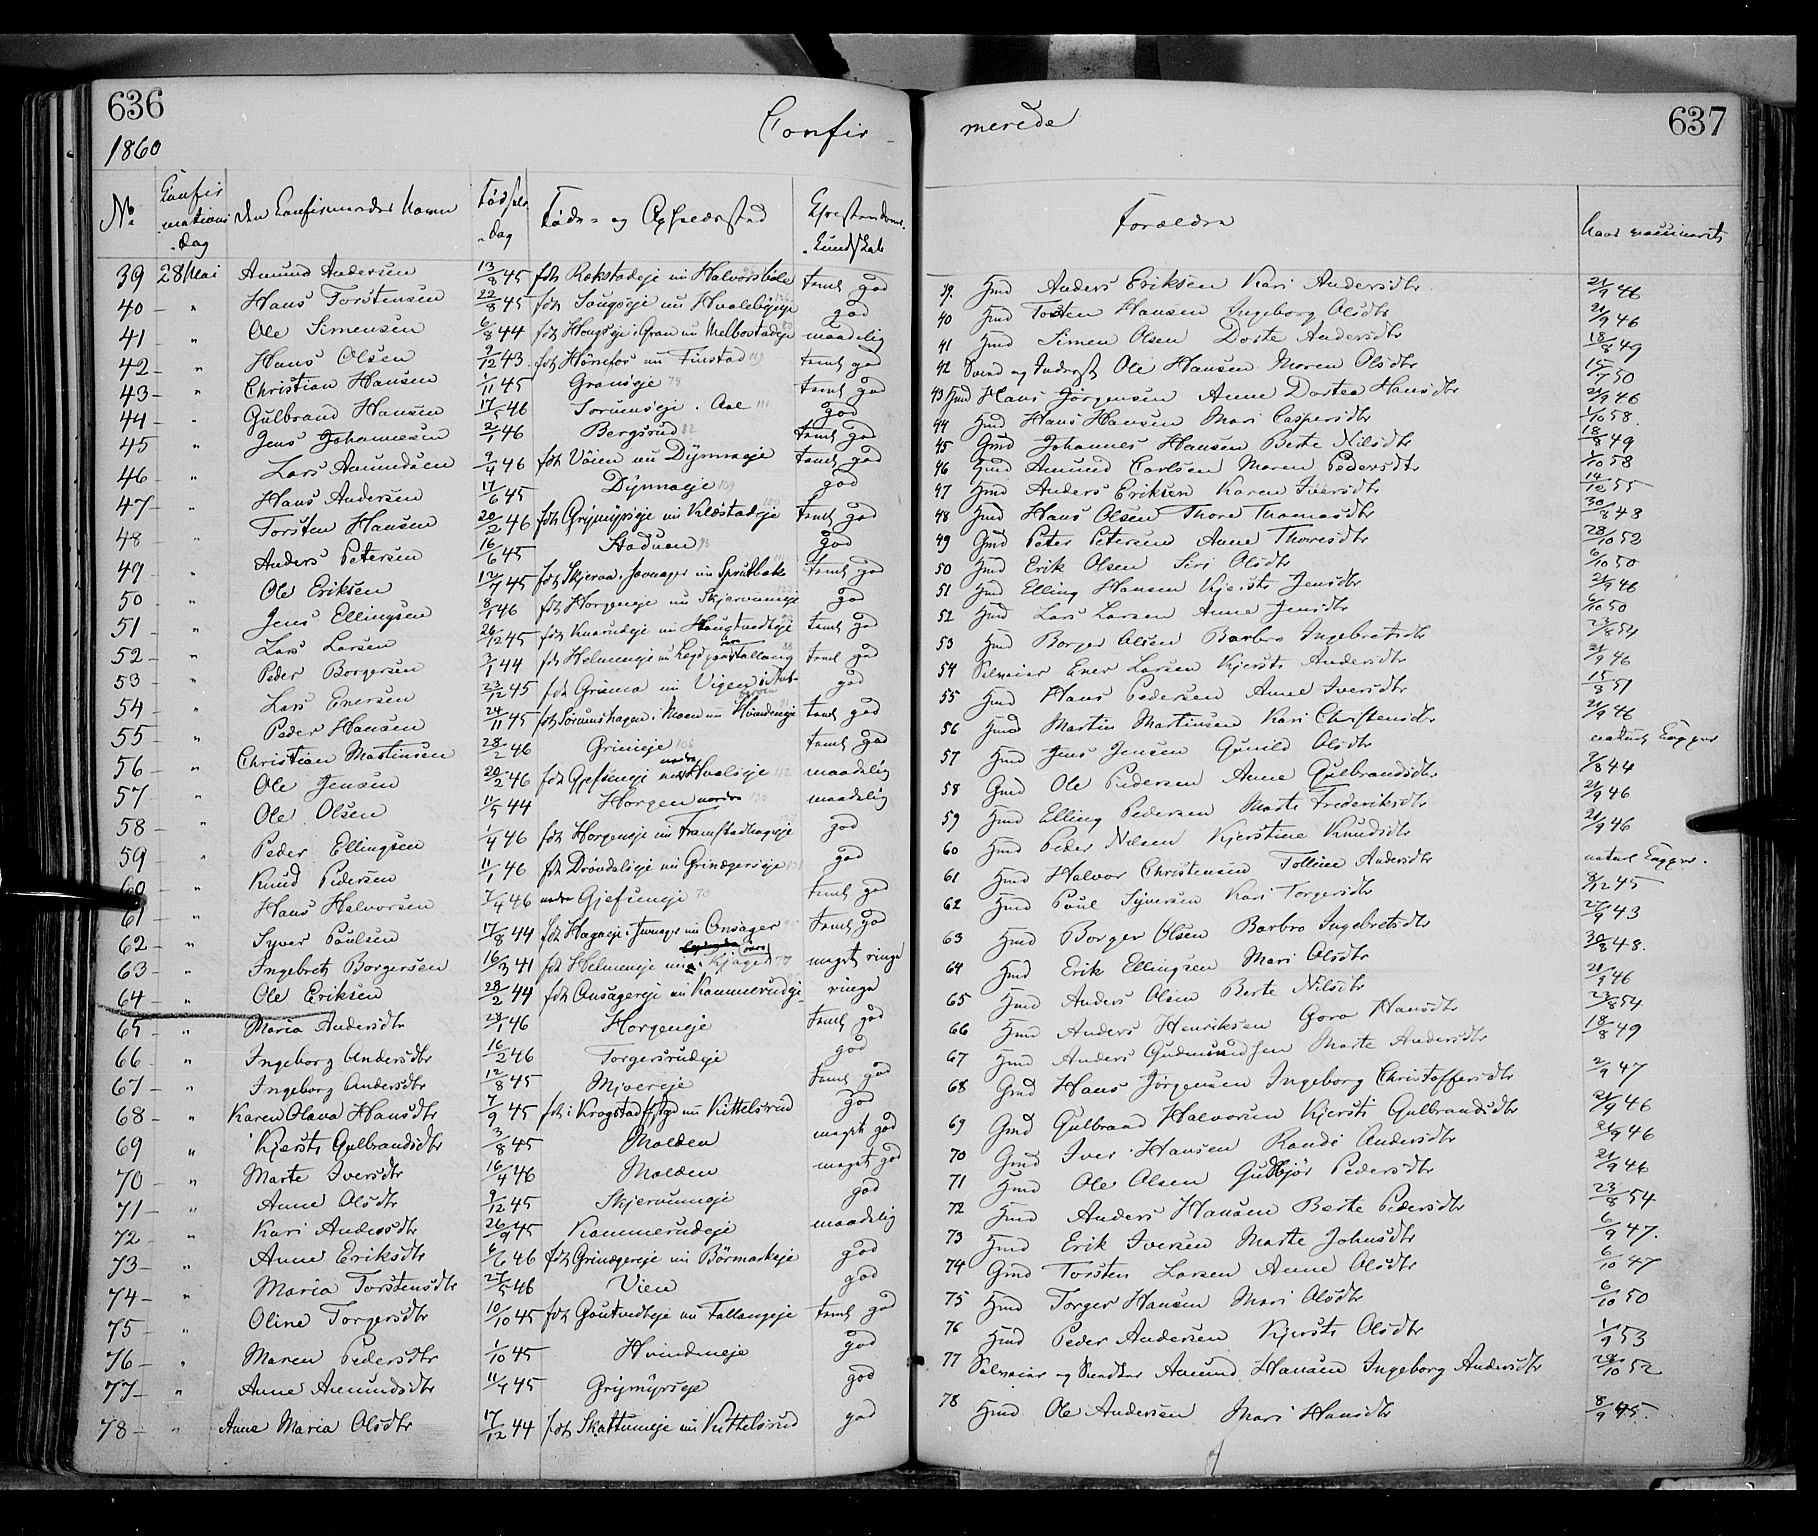 636
1860
Confir-
No
Confir
mations
dag
Den Confirmerdes Navn
Fødsels
dag
Føde- og Opholdssted
Christendoms
Kundskab
39 28 Mai Amund Andersen 13/8 45 født Rakstadeje nu Halvorsbøle temel god
40 - " Hans Torstensen 22/8 45 født Sougseje nu god
41 - " Ole Simensen 6/8 44 født Hougseje i Gran nu Melbostadeje maadelig
42 - " Hans Olsen 9/12 43 født Hønefos nu Finstad 119 temel god
43 - " Christian Hansen 1/11 45 Granseje 78 temel god
44 - " Gulbrand Hansen 17/5 46 Sorumseje i Aal 111 god
45 " Jens Johannesen 2/1 46 Bergsrud 82 temel god
46 - " Lars Amundsen 9/4 46 født Vöien nu Dynnaeje temel god
47 - " Hans Andersen 17/6 45 Dynnaeje 109 god
48 - " Torsten Hansen 20/2 46 født Grymyrseje nu Kløstadeje temel god
49 - " Anders Petersen 16/6 45 Staduen god
50 - " Ole Eriksen 12/7 45 født Skjerva i Jevnager nu Sprutbake temel god
51 - " Jens Ellingsen 8/1 46 født Horgeneje nu Skjervumeje god
52 - " Lars Larsen 26/12 45 født Knarudeje nu Hougtvedteje temel god
53 - " Peder Borgersen 3/1 44 født Helmeneje nu Tallang temel god
54 - " Lars Enersen 23/12 45 født Grisma nu Vigen god
55 - " Peder Hansen 24/11 45 født Sörumshagen i Moen nu Hvindeneje temel god
56 - " Christian Martinsen 28/2 46 Grineje 106 temel god
57 - " Ole Jensen 20/2 46 født Gjefseneje nu nordre Hvalseje 112 maadelig
58 - " Ole Olsen 11/5 44 Horgen nordre 130 maadelig
59 - " Peder Ellingsen 1/4 46 født Horgeneje nu Framstadhageje god
60 - " Knud Pedersen 11/1 46 født Drövdalseje nu Grinageréje god
61 - " Hans Halvorsen 7/4 46 nedre Gjefseneje 70 temel god
62 - " Syver Poulsen 17/8 44 født Hageeje i Jevnager nu Onsager temel god
63 - " Ingebret Borgersen 16/3 41 født Helmeneje nu Kjager meget ringe
64 - " Ole Eriksen 28/2 44 født Onsagereje nu Kammerudeje ringe
65 - " Maria Andersdtr 28/1 46 Horgeneje temel god
66 - " Ingeborg Andersdtr 16/2 46 Torgersrudeje god
67 - " Ingeborg Andersdtr 12/8 45 Mjovereje temel god
68 - " Karen Olava Hansdtr 7/9 45 født i Krogstad nu Kittelsrud god
69 " Kjersti Gulbrandsdtr 3/8 45 Molden meget god
70 - " Marte Iversdtr 16/4 46 Molden meget god
71 - " Anne Olsdtr 9/12 45 Skjervumeje god
72 - " Kari Andersdtr 26/9 45 Kammerudeje maadelig
73 - " Anne Eriksdtr 6/6 46 født Grinagereje nu Börmarkeje god
74 - " Maria Torstensdtr 27/5 46 Vien god
75 - " Oline Torgersdtr 10/10 45 født Goutvedteje nu Tallangeje temel god
76 - " Maren Pedersdtr 1/10 45 Hvindeneje god
77 - " Anne Amundsdtr 11/7 45 Grymyrseje god
78 - " Anne Maria Olsdtr 17/12 44 født Skattumeje nu Kittelsrud god
merede
637
Forældre
Naar vaccineret
39. Hmd Anders Eriksen Kari Andersdtr. 21/9 46
40 Hmd Tosten Hansen Ingeborg Olsdtr 21/9 46
41 Hmd Simen Olsen Dorte Andersdtr 18/8 49
42 Svend og Inderst Ole Hansen Maren Olsdtr 50
43 Hmd Hans Jørgensen Anne Dortea Hansdtr 21/9 46
44 Hmd Hans Hansen Mari Caspersdtr 1/10 58.
45 Gmd Johannes Hansen Berte Nilsdtr 18/8 49
46 Hmd Amund Carlsen Maren Pedersdtr 1/10 58
47 Hmd Anders Eriksen Karen Iversdtr 14/12 55
48 Hmd Hans Olsen Thore Thomasdtr 30/8 48
49 Gmd Peter Petersen Anne Thoresdtr 28/10 52
50 Hmd Erik Olsen Siri Olsdtr 6/10 50
51 Hmd Elling Hansen Kjersti Jensdtr 21/9 46
52 Hmd Lars Larsen Anne Jensdtr 6/10 50
53 Hmd Borger Olsen Barbro Ingebretsdtr 23/8 54
54 Selveier Ener Larsen Kjersti Andersdtr 21/9 46
55 Hmd Hans Pedersen Anne Iversdtr 15/8 51
56 Hmd Martin Martinsen Kari Christensdtr 21/9 46
57 Hmd Jens Jensen Gunild Olsdtr naturl Kopper
58 Gmd Ole Pedersen Anne Gulbrandsdtr 9/8 44
59 Hmd Elling Pedersen Marte Frederiksdtr 21/9 46
60 Hmd Peder Nilsen Kjerstine Knudsdtr 21/9 46
61 Hmd Halvor Christensen Tolline Andersdtr naturl Kopper.
62 Hmd Poul Syversen Kari Torgersdtr 8/12 45
63 Hmd Borger Olsen Barbro Ingebretsdtr 27/9 43
64 Hmd Erik Ellingsen Mari Olsdtr 30/8 48.
65 Hmd Anders Olsen Berte Nilsdtr 21/9 46
66 Hmd Anders Henriksen Goro Hansdtr 23/8 54
67 Hmd Anders Gudmundsen Marte Andersdtr 18/8 49
68 Gmd Hans Jørgensen Ingeborg Christoffersdtr 2/9 47
69 Gmd Gulbrand Halvorsen Kjersti Gulbrandsdtr 21/9 46
70 Gmd Iver Hansen Randi Andersdtr 21/9 46
71 Hmd Ole Olsen Gudbjør Pedersdtr 21/9 46
72 Hmd Anders Hansen Berte Pedersdtr 23/8 54
73 Hmd Erik Iversen Marte Johnsdtr 6/9 47.
74 Gmd Torsten Larsen Anne Olsdtr 6/10 47
75 Hmd Torger Hansen Mari Olsdtr 6/10 50
76 Hmd Peder Andersen Kjersti Olsdtr 1/9 53
77 Selveier og Snedker Amund Hansen Ingeborg Andersdtr 28/10 52
78 Hmd Ole Andersen Mari Hansdtr 8/9 45.